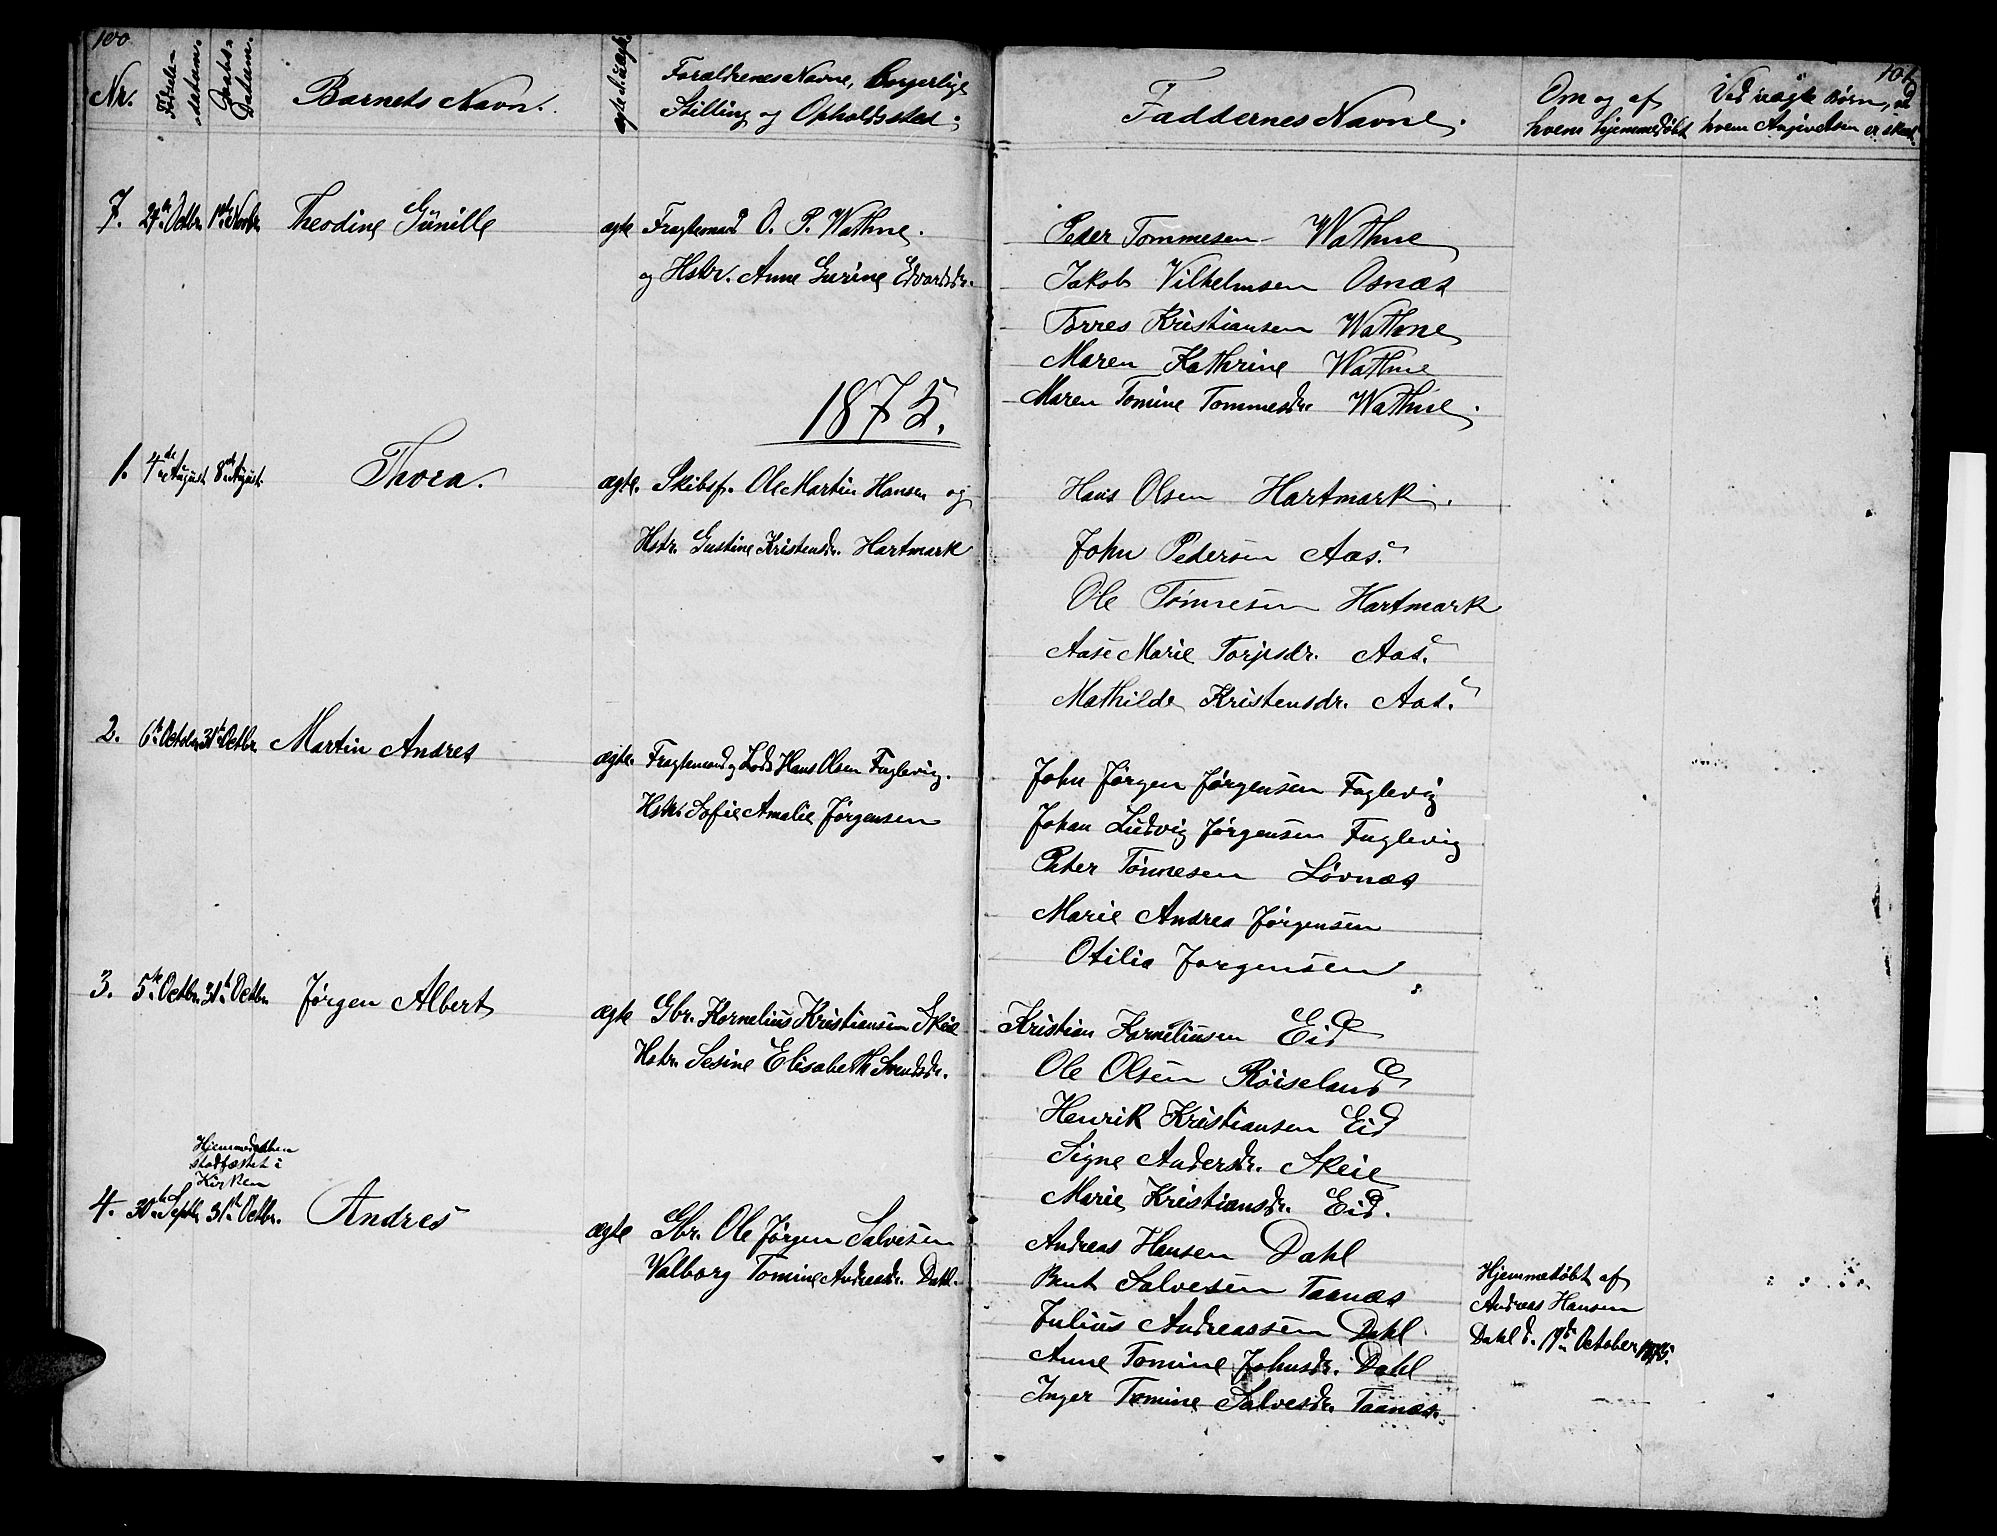 100
Nr.
Fødsels-
datum.
Daabs-
Datum.
Barnets Navn.
Forældrenes Navne, borgerlige
Stilling og Opholdssted.
Faddernes Navne.
Om og af
hvem hjemmedøbt
Ved uægte Børn, ved
hvem Angivelsen er skeet.
101
7. 1ste Novbr. Theodine Günille
ægte Fragtemand O. P. Wathne.
og Hstr. Anne Gurine Edvardsdr.
Peder Tommesen Wathne
Jakob Vilhelmsen Osnæs
Torres Kristiansen Wathne
Maren Kathrine Wathne
Maren Tomine Tommesdr. Wathne.
1875.
1. 4de August 8de August. Thora.
ægte. Skibsf. Ole Martin Hansen og
Hstr. Gustine Kristensdr. Hartmark
Hans Olsen Hartmark.
John Pedersen Aas.
Ole Tönnesen Hartmark
Aase Marie Torjusdr. Aas.
Mathilde Kristensdr. Aas.
2. 6te October 31te Octbr. Martin Andres
ægte. Fragtemand og Lods Hans Olsen Fuglevig.
Hstr. Sofie Amalie Jørgensen
John Jørgen Jørgensen Fuglevig
Johan Ludvig Jørgensen Fuglevig
Peter Tönnesen Løvnæs
Marie Andrea Jørgensen
Otilia Jørgensen
3. 5te Octbr. 31te Octbr. Jørgen Albert
ægte Gbr. Kornelius Kristiansen Skeie
Hstr. Sesine Elisabeth Svendsdr.
Kristian Korneliusen Eid
Ole Olsen Röiseland
Henrik Kristiansen Eid
Signe Andersdr. Skeie
Marie Kristiansdr. Eid.
Hjemmedaaben
stadfæstet i
Kirken
4. 30te Septbr. 31te Octbr. Andres
ægte Gbr. Ole Jørgen Salvesen
Valborg Tomine Andreasdr. Dahl.
Andreas Hansen Dahl
Bent Salvesen Taanæs
Julius Andreassen Dahl
Anne Tomine Johnsdr. Dahl
Inger Tomine Salvesdr. Taanæs.
Hjemmedøbt af
Andreas Hansen
Dahl d. October 1875.